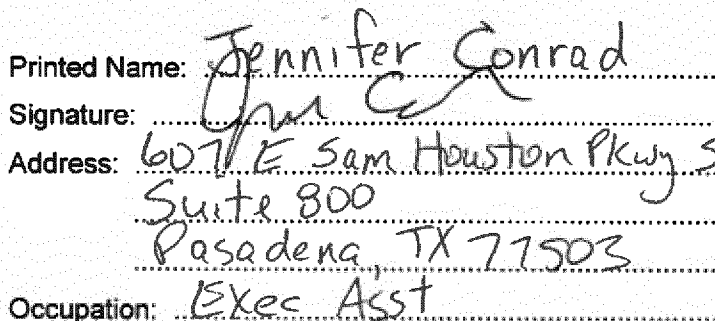 Printed Name: Jennifer Conrad
Signature:
Address: 607 E Sam Houston Pkwy S
Suite 800
Pasadena, TX 77503
Occupation: Exec Asst